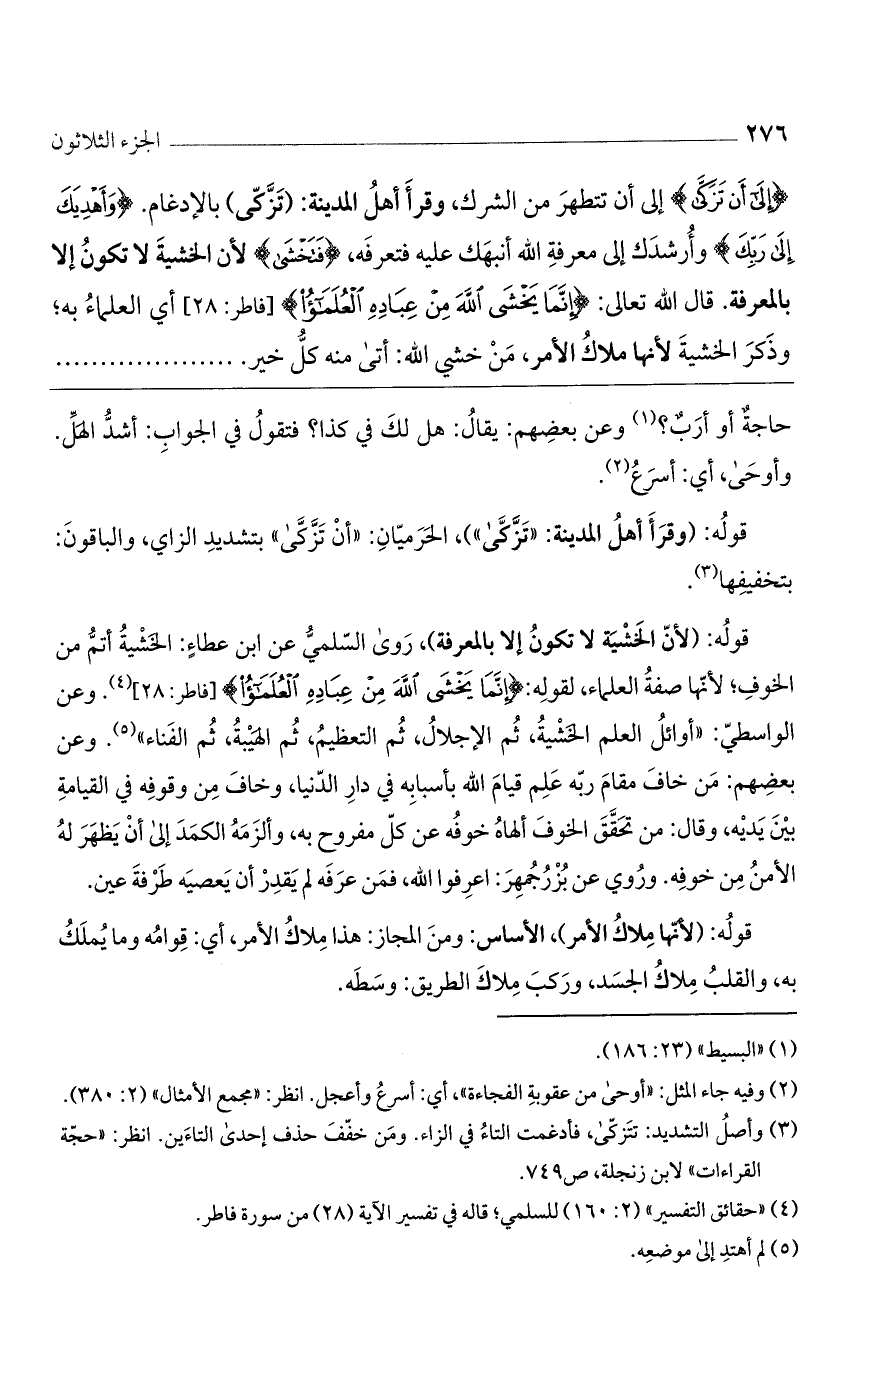 ٢٧٦ الجزء الثلاثون
﴿إِلَىٰٓ أَن تَزَكَّىٰ﴾ إلى أن تتطهرَ من الشرك، وقرأَ أهلُ المدينة: (تَزَّكّى) بالإدغام. ﴿وَأَهْدِيَكَ
إِلَىٰ رَبِّكَ﴾ وأُرشدَك إلى معرفةِ الله أنبهَك عليه فتعرفَه، ﴿فَتَخْشَىٰ﴾ لأن الخشيةَ لا تكونُ إلا
بالمعرفة. قال الله تعالى: ﴿إِنَّمَا يَخْشَى ٱللَّهَ مِنْ عِبَادِهِ ٱلْعُلَمَٰٓؤُا۟﴾ [فاطر: ٢٨] أي العلماءُ به؛
وذَكرَ الخشيةَ لأنها ملاكُ الأمر، مَنْ خشي الله: أتىٰ منه كلُّ خير. ...................
حاجةٌ أو أرَبٌ؟(١) وعن بعضِهم: يقالُ: هل لكَ في كذا؟ فتقولُ في الجوابِ: أشدُّ الهَلِّ.
وأوحَىٰ، أي: أسرَعُ(٢).
قولُه: (وقرَأَ أهلُ المدينة: «تَزَّكَّىٰ»)، الحَرَميّانِ: «أنْ تَزَّكَّىٰ» بتشديدِ الزاي، والباقونَ:
بتخفيفِها(٣).
قولُه: (لأنّ الخَشْيَة لا تكونُ إلا بالمعرفة)، رَوىٰ السّلميُّ عن ابن عطاءٍ: الخَشْيةُ أتمُّ من
الخوفِ؛ لأنّها صفةُ العلماء، لقولِه: ﴿إِنَّمَا يَخْشَى ٱللَّهَ مِنْ عِبَادِهِ ٱلْعُلَمَٰٓؤُا۟﴾ [فاطر: ٢٨](٤). وعن
الواسطيّ: «أوائلُ العلم الخَشْيةُ، ثُم الإجلالُ، ثُم التعظيمُ، ثُم الهَيْبةُ، ثُم الفَناء»(٥). وعن
بعضِهم: مَن خافَ مقامَ ربّه عَلِم قيامَ الله بأسبابِه في دارِ الدّنيا، وخافَ مِن وقوفِه في القيامةِ
بيْنَ يَديْه، وقال: من تحَقَّقَ الخوفَ ألهاهُ خوفُه عن كلّ مفروح به، وألزَمَهُ الكمَدَ إلىٰ أنْ يَظهَرَ لهُ
الأمنُ مِن خوفِه. ورُوي عن بُزْرُجُمِهرَ: اعرِفوا الله، فمَن عرَفَه لم يَقدِرْ أن يَعصيَه طَرْفةَ عين.
قولُه: (لأنّها مِلاكُ الأمر)، الأساس: ومنَ المجاز: هذا مِلاكُ الأمر، أي: قِوامُه وما يُملَكُ
به، والقلبُ مِلاكُ الجسَد، ورَكبَ مِلاكَ الطريق: وسَطَه.
(١) «البسيط» (٢٣: ١٨٦).
(٢) وفيه جاء المثل: «أوحىٰ من عقوبةِ الفجاءة»، أي: أسرعُ وأعجل. انظر: «مجمع الأمثال» (٢: ٣٨٠).
(٣) وأصلُ التشديد: تتَزكّىٰ، فأدغمت التاءُ في الزاء. ومَن خفّفَ حذف إحدىٰ التاءَين. انظر: «حجّة
القراءات» لابن زنجلة، ص٧٤٩.
(٤) «حقائق التفسير» (٢: ١٦٠) للسلمي؛ قاله في تفسير الآية (٢٨) من سورة فاطر.
(٥) لم أهتدِ إلىٰ موضعِه.